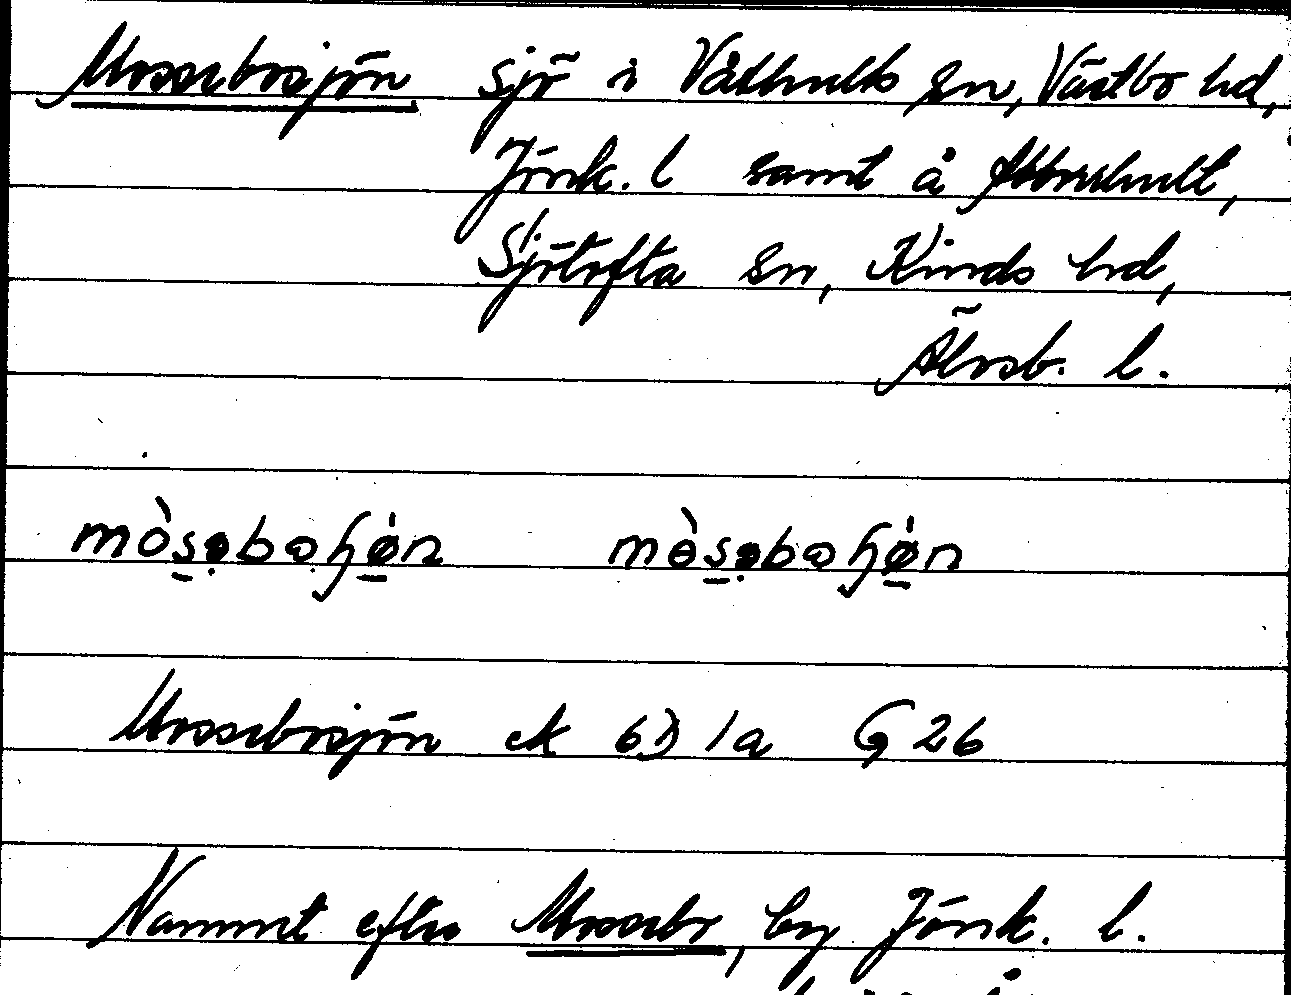 Mossebosjön sjö i Våthults sn, Västbo hd,
Jönk. l samt å Abborshult,
Sjötofta sn, Kinds hd,
Älvsb. l.
Mossebosjön ek 6D 1a G 26
Namnet efter Mossebo, by Jönk. l.